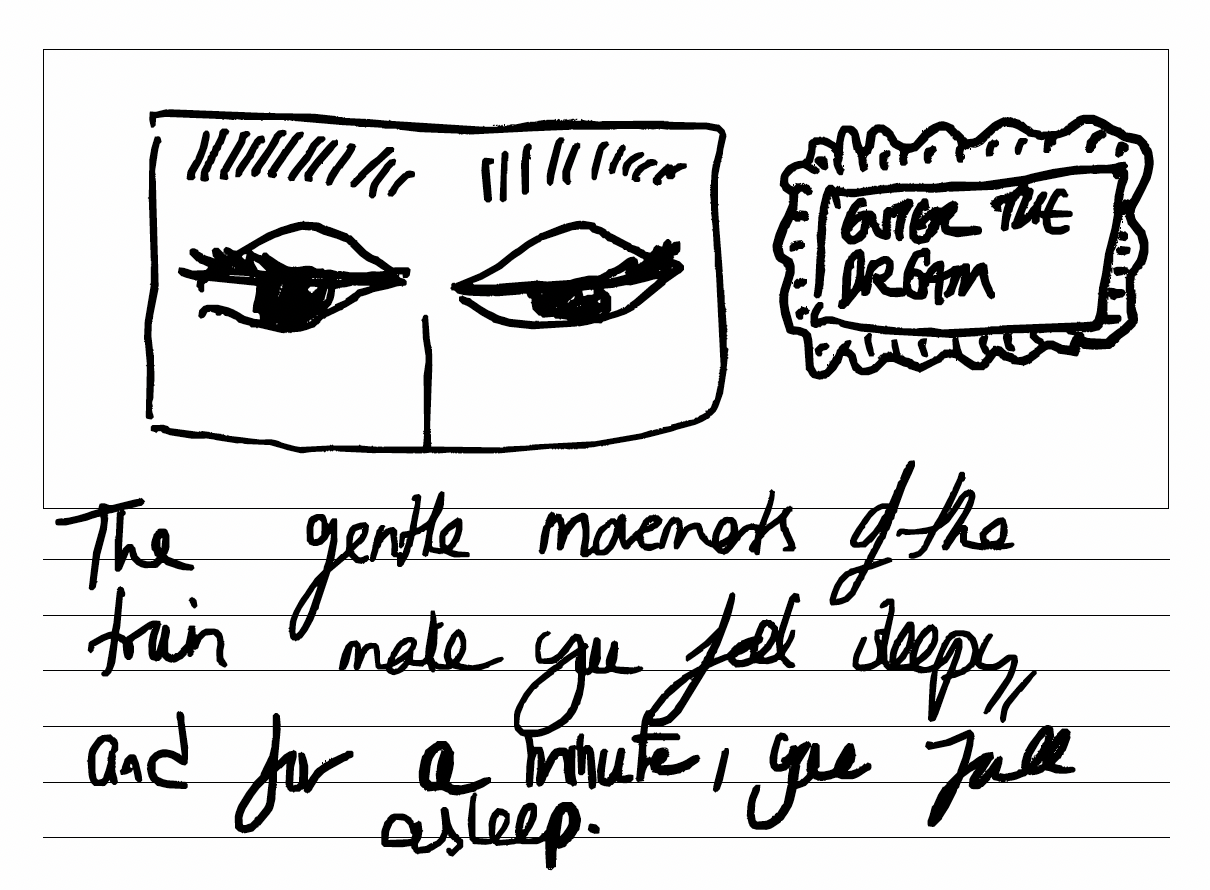 ENTER THE
DREAM
The gentle movements of the
train make you feel sleepy,
and for a minute, you fall
asleep.